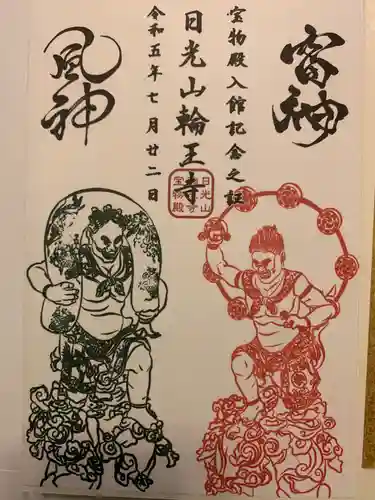 雷神
宝物殿入館記念之証
日光山輪王寺
令和五年七月廿二日
風神
日光山
宝物殿